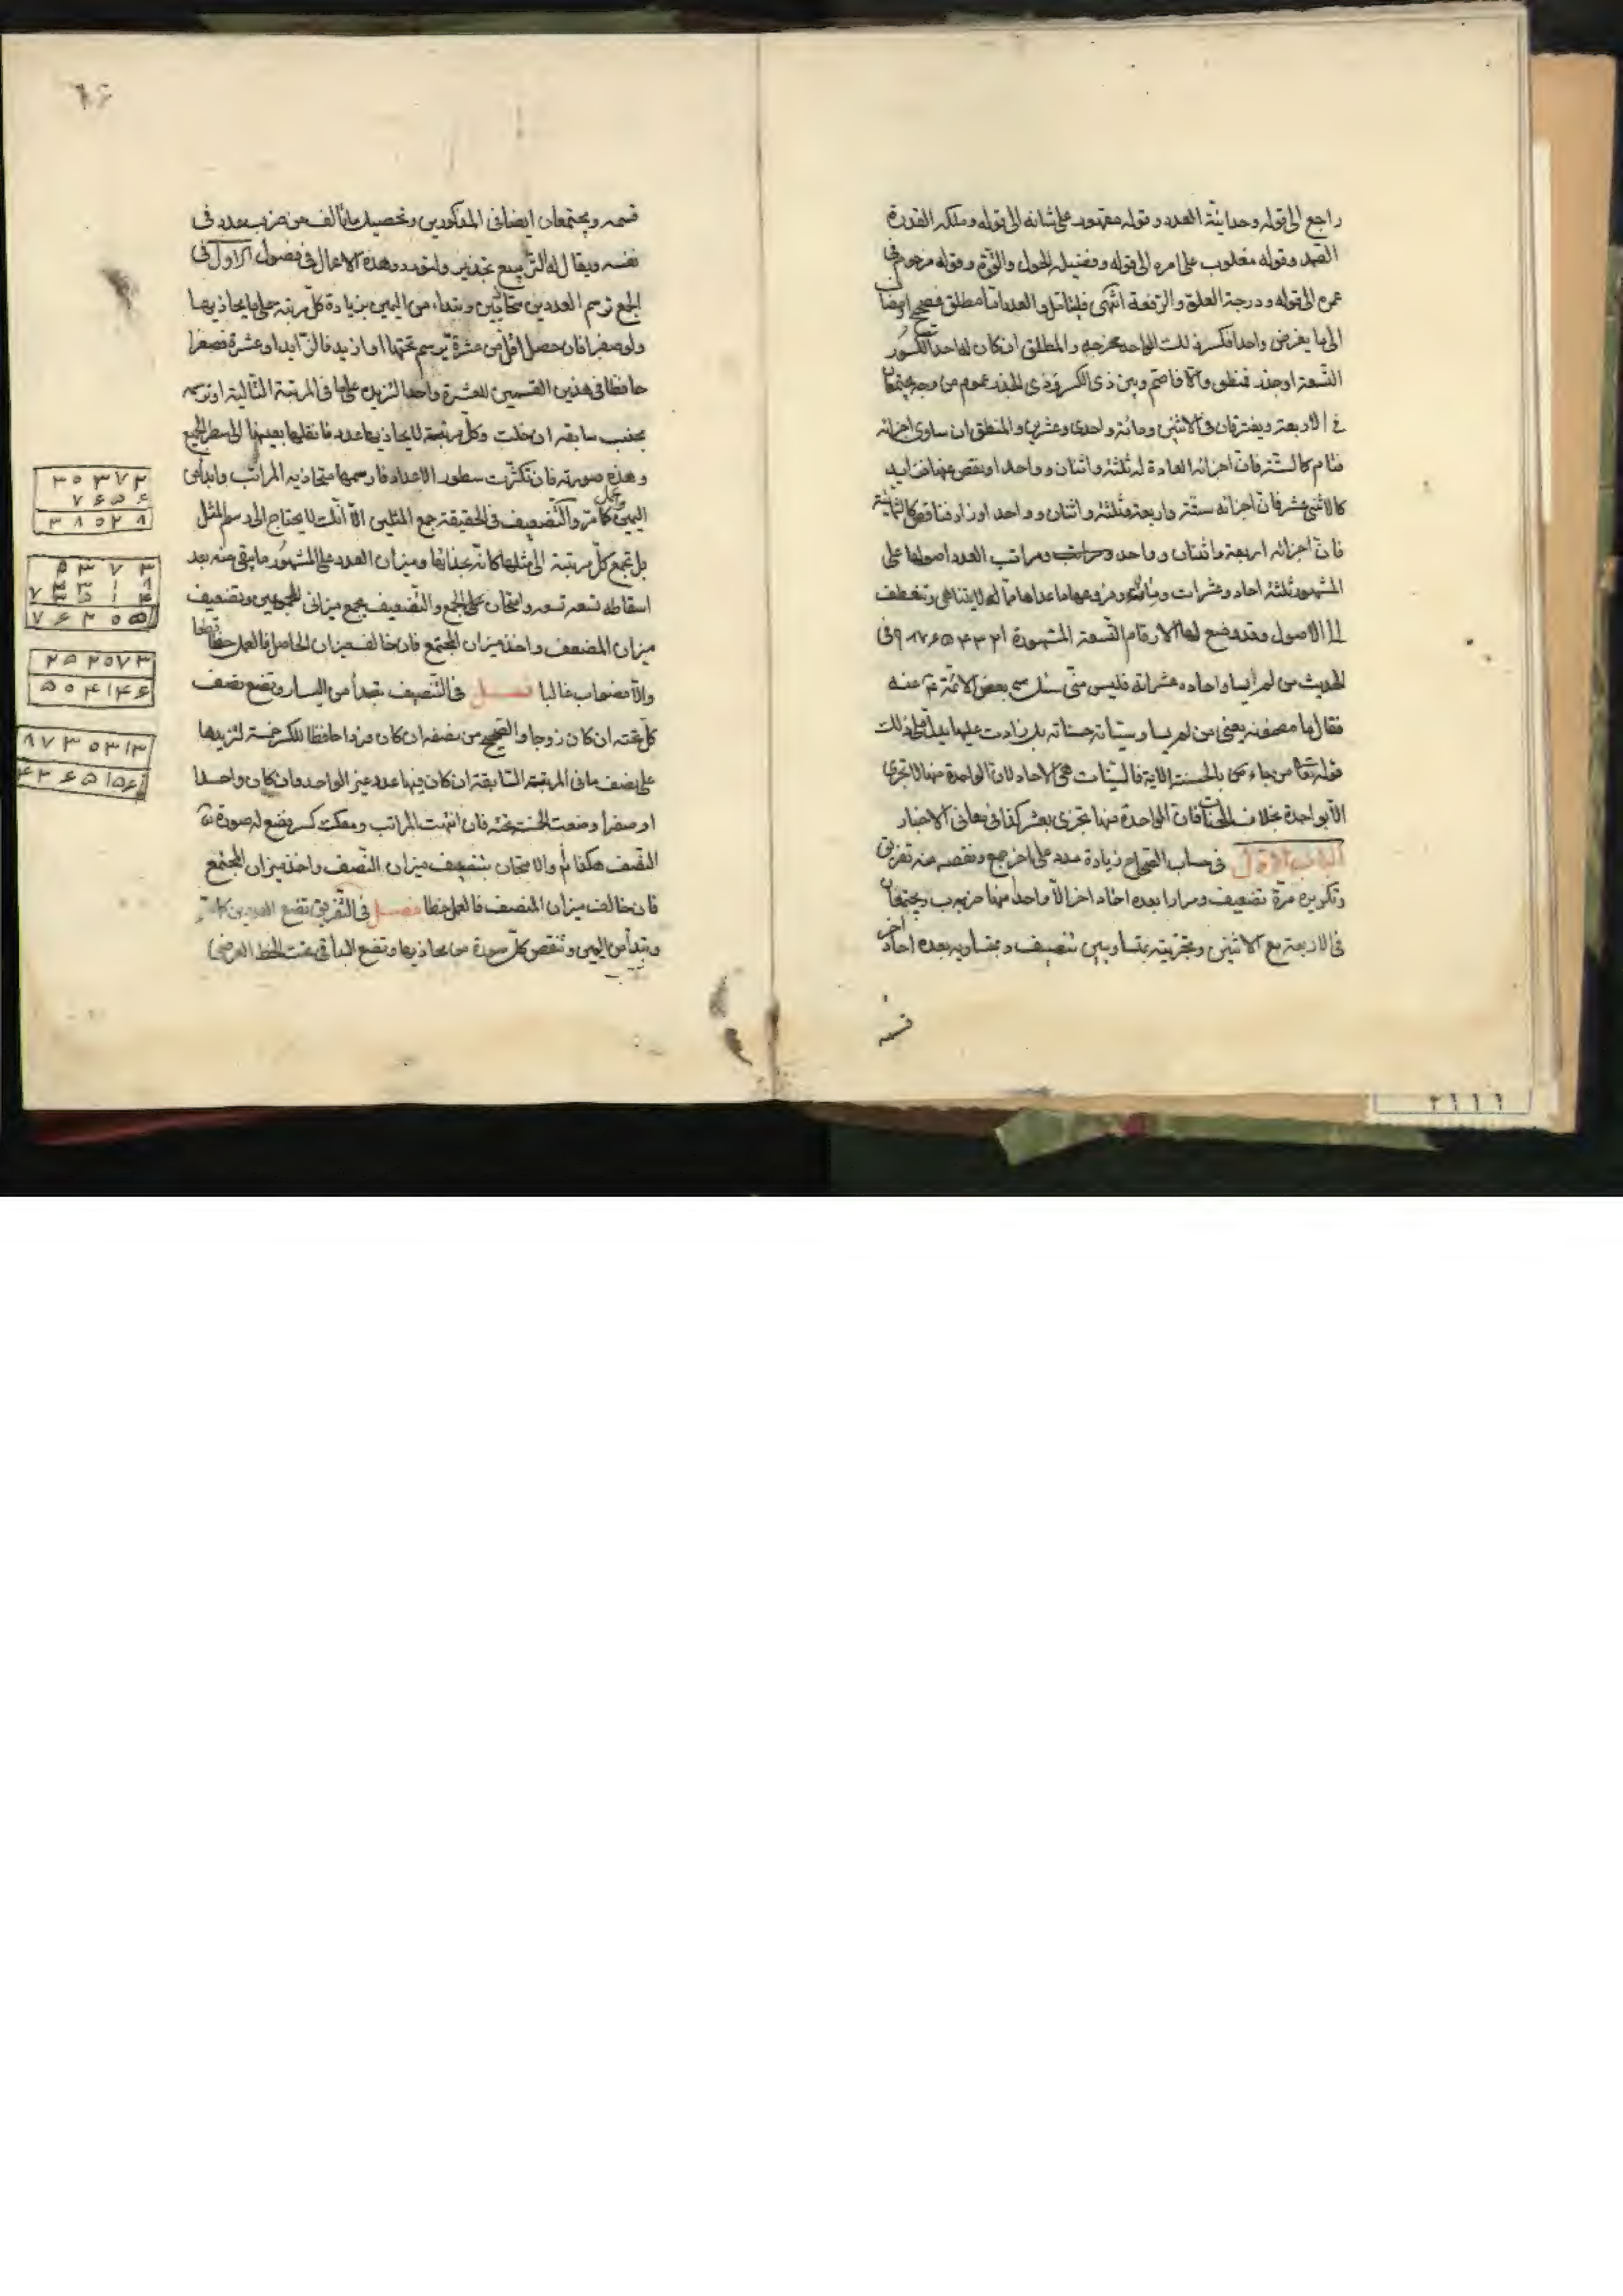 راجع الى قوله وحدانيّة العدد وقوله مقهور على شانه الى قوله وملكة القدرة
الصمد وقوله مغلوب على امره الى قوله وفضيلة الحول والقوّة وقوله مرحوم فى
عمره الى قوله ودرجة العلوّ والرفعة انتهى فليتامّل والعدد امّا مطلق فصحيح او مضاف
الى ما يفرض واحدا فكسر وذلك الواحد مخرجه والمطلق ان كان له احد الكسور
التسعة او جذر فمنطق والّا فاصمّ وبين ذى الكسر وذى الجذر عموم من وجه يجتمعان
فى الاربعة ويفترقان فى الاثنين ومائة واحدى وعشرين والمنطق ان ساوى اجزائه
فتام كالستّة فانّ اجزائه العادة له ثلثة واثنان وواحد او نقص عنها فزايد
كالاثنى عشر فانّ اجزائه ستّة واربعة وثلثة واثنان وواحد او زاد فناقص كالثمانية
فانّ اجزائه اربعة واثنان وواحد ومراتب العدد اصولها على
المشهور ثلثة احاد وعشرات ومئات وفروعها ما عداها ممّا لا يتناهى وتنعطف
الى الاصول وقد وضع لها الارقام التسعة المشهورة ١٢٣۴۵۶٧٨٩ وفى
الحديث من لم احاده عشراته فليس منّى سئل بعض الائمّة عنه
فقال ما مضمونه يعنى من لم سيّئاته حسناته بل زادت عليها يدلّ على ذلك
قوله تعا من جاء بالحسنة الاية فالسيّئات هى الاحاد لانّ الواحدة منها لا تجزى
الّا بواحدة بخلاف الحسنات فانّ الواحدة منها تجزى بعشر كذا فى معانى الاخبار
الباب الاوّل فى حساب الصحاح زيادة عدد على اخر جمع ونقصه منه تفريق
وتكريره مرّة تضعيف ومرارا بعدة احاد اخر الّا واحدا منها ضرب ويجتمعان
فى الاربعة مع الاثنين وتجزيته بمتساويين تنصيف وبمتساوية بعدة احاد اخر
قسمة
قسمة ويجتمعان ايضا فى المذكورين وتحصيل ما تألّف من ضرب عدد فى
نفسه ويقال له التربيع تجذير ولنورد هذه الاعمال فى فصول الاوّل فى
الجمع ترسم العددين متحاذيين وتبتدء من اليمين بزيادة كلّ مرتبة على ما يحاذيها
ولو صفرا فان حصل اقلّ من عشرة ترسم تحتها او ازيد فالزّايد او عشرة فصفرا
حافظا فى هذين القسمين للعشرة واحدا لتزيده على ما فى المرتبة التالية او ترسمه
بجنب سابقه ان خلت وكلّ مرتبة لا يحاذيها عدد فانقلها بعينها الى سطر الجمع
وهذه صورته فان تكثّرت سطور الاعداد فارسمها متحاذية المراتب وابدأ من
اليمين كما مرّ والتّضعيف فى الحقيقة جمع المثلين الّا انّك لا يحتاج الى رسم المثل
بل تجمع كلّ مرتبة الى مثلها كانّه بحذائها وميزان العدد على المشهور ما بقى منه بعد
اسقاطه تسعة تسعة وامتحان الجمع والتّضعيف بجمع ميزانى المجموعين وتضعيف
ميزان المضعف واخذ ميزان المجتمع فان خالف ميزان الحاصل فالعمل خطا قطعا
والّا فصواب غالبا فصل فى التّنصيف تبدأ من اليسار وتضع نصف
كلّ تحته ان كان زوجا والصّحيح من نصفه ان كان فردا حافظا للكسر خمسة لتزيدها
على نصف ما فى المرتبة السّابقة ان كان فيها عدد غير الواحد وان كان واحدا
او صفرا وضعت الخمسة تحته فان انتهت المراتب ومعك كسر فضع له صورة
النّصف هكذا والامتحان بتضعيف ميزان النّصف واخذ ميزان المجتمع
فان خالف ميزان المنصف فالعمل خطا فصل فى التّفريق تضع العددين كما مرّ
وتبدأ من اليمين وتنقص كلّ صورة من محاذيها وتضع الباقى تحت الخط العرضى
٣ ٠ ٣ ٧ ٢
٧ ۶ ۵ ۶
٣ ٨ ٠ ٢ ٨
٢ ۵ ٢ ٠ ٧ ٣
۵ ٠ ۴ ١ ۴ ۶
٨ ٧ ٣ ٠ ٣ ١ ٣
۴ ٣ ۶ ۵ ١ ۵ ۶
٢١١١